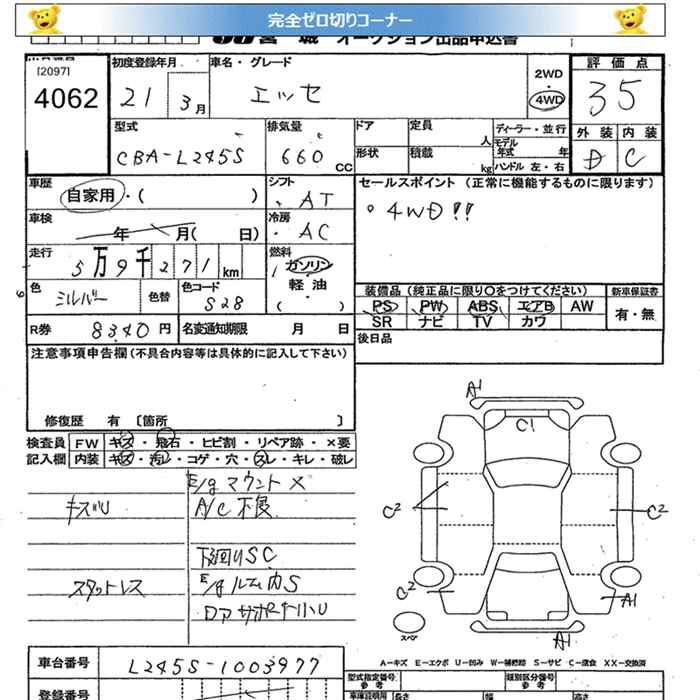 完全ゼロ切りコーナー
オークション出品申込書
[2097]
4062
初度登録年月 21 3月
車名・グレード エッセ
2WD・4WD
評価点 35
外装 D 内装 C
型式 CBA-L245S
排気量 660 CC
ドア 定員 人
形状 積載 kg
ディーラー・並行
モデル年式 年
ハンドル 左・右
車歴 自家用・( )
シフト AT
セールスポイント (正常に機能するものに限ります)
4WD!!
車検 年 月( 日)
冷房 AC
走行 5万9千271km
燃料 ガソリン 軽油 ( )
色 シルバー 色替 色コード S28
装備品 (純正品に限り○をつけてください) 新車保証書
PS PW ABS エアB AW 有・無
SR ナビ TV カワ
R券 8340円 名変通知期限 月 日
後日品
注意事項申告欄(不具合内容等は具体的に記入して下さい)
修復歴 有 〔箇所 〕
検査員 FW キズ・飛石・ヒビ割・リペア跡・×要
記入欄 内装 キズ・汚レ・コゲ・穴・スレ・キレ・破レ
E/gマウント×
キズU A/C不良
下回りSC
スタットレス E/gルーム内S
ロアサポート小U
A1
C1
C2
C2
C2
A1
A1
スペア
A－キズ E－エクボ U－凹み W－補修跡 S－サビ C－腐食 XX－交換済
車台番号 L245S-1003977
登録番号
型式指定番号 類別区分番号
参考
車庫証明用 長さ 幅 高さ